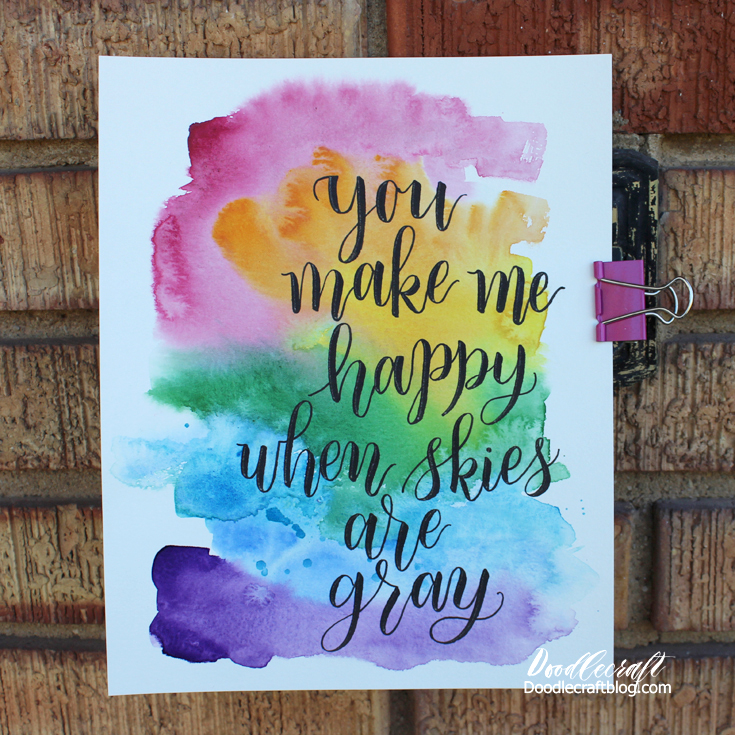 you
make me
happy
when skies
are
gray
Doodlecraft
Doodlecraftblog.com